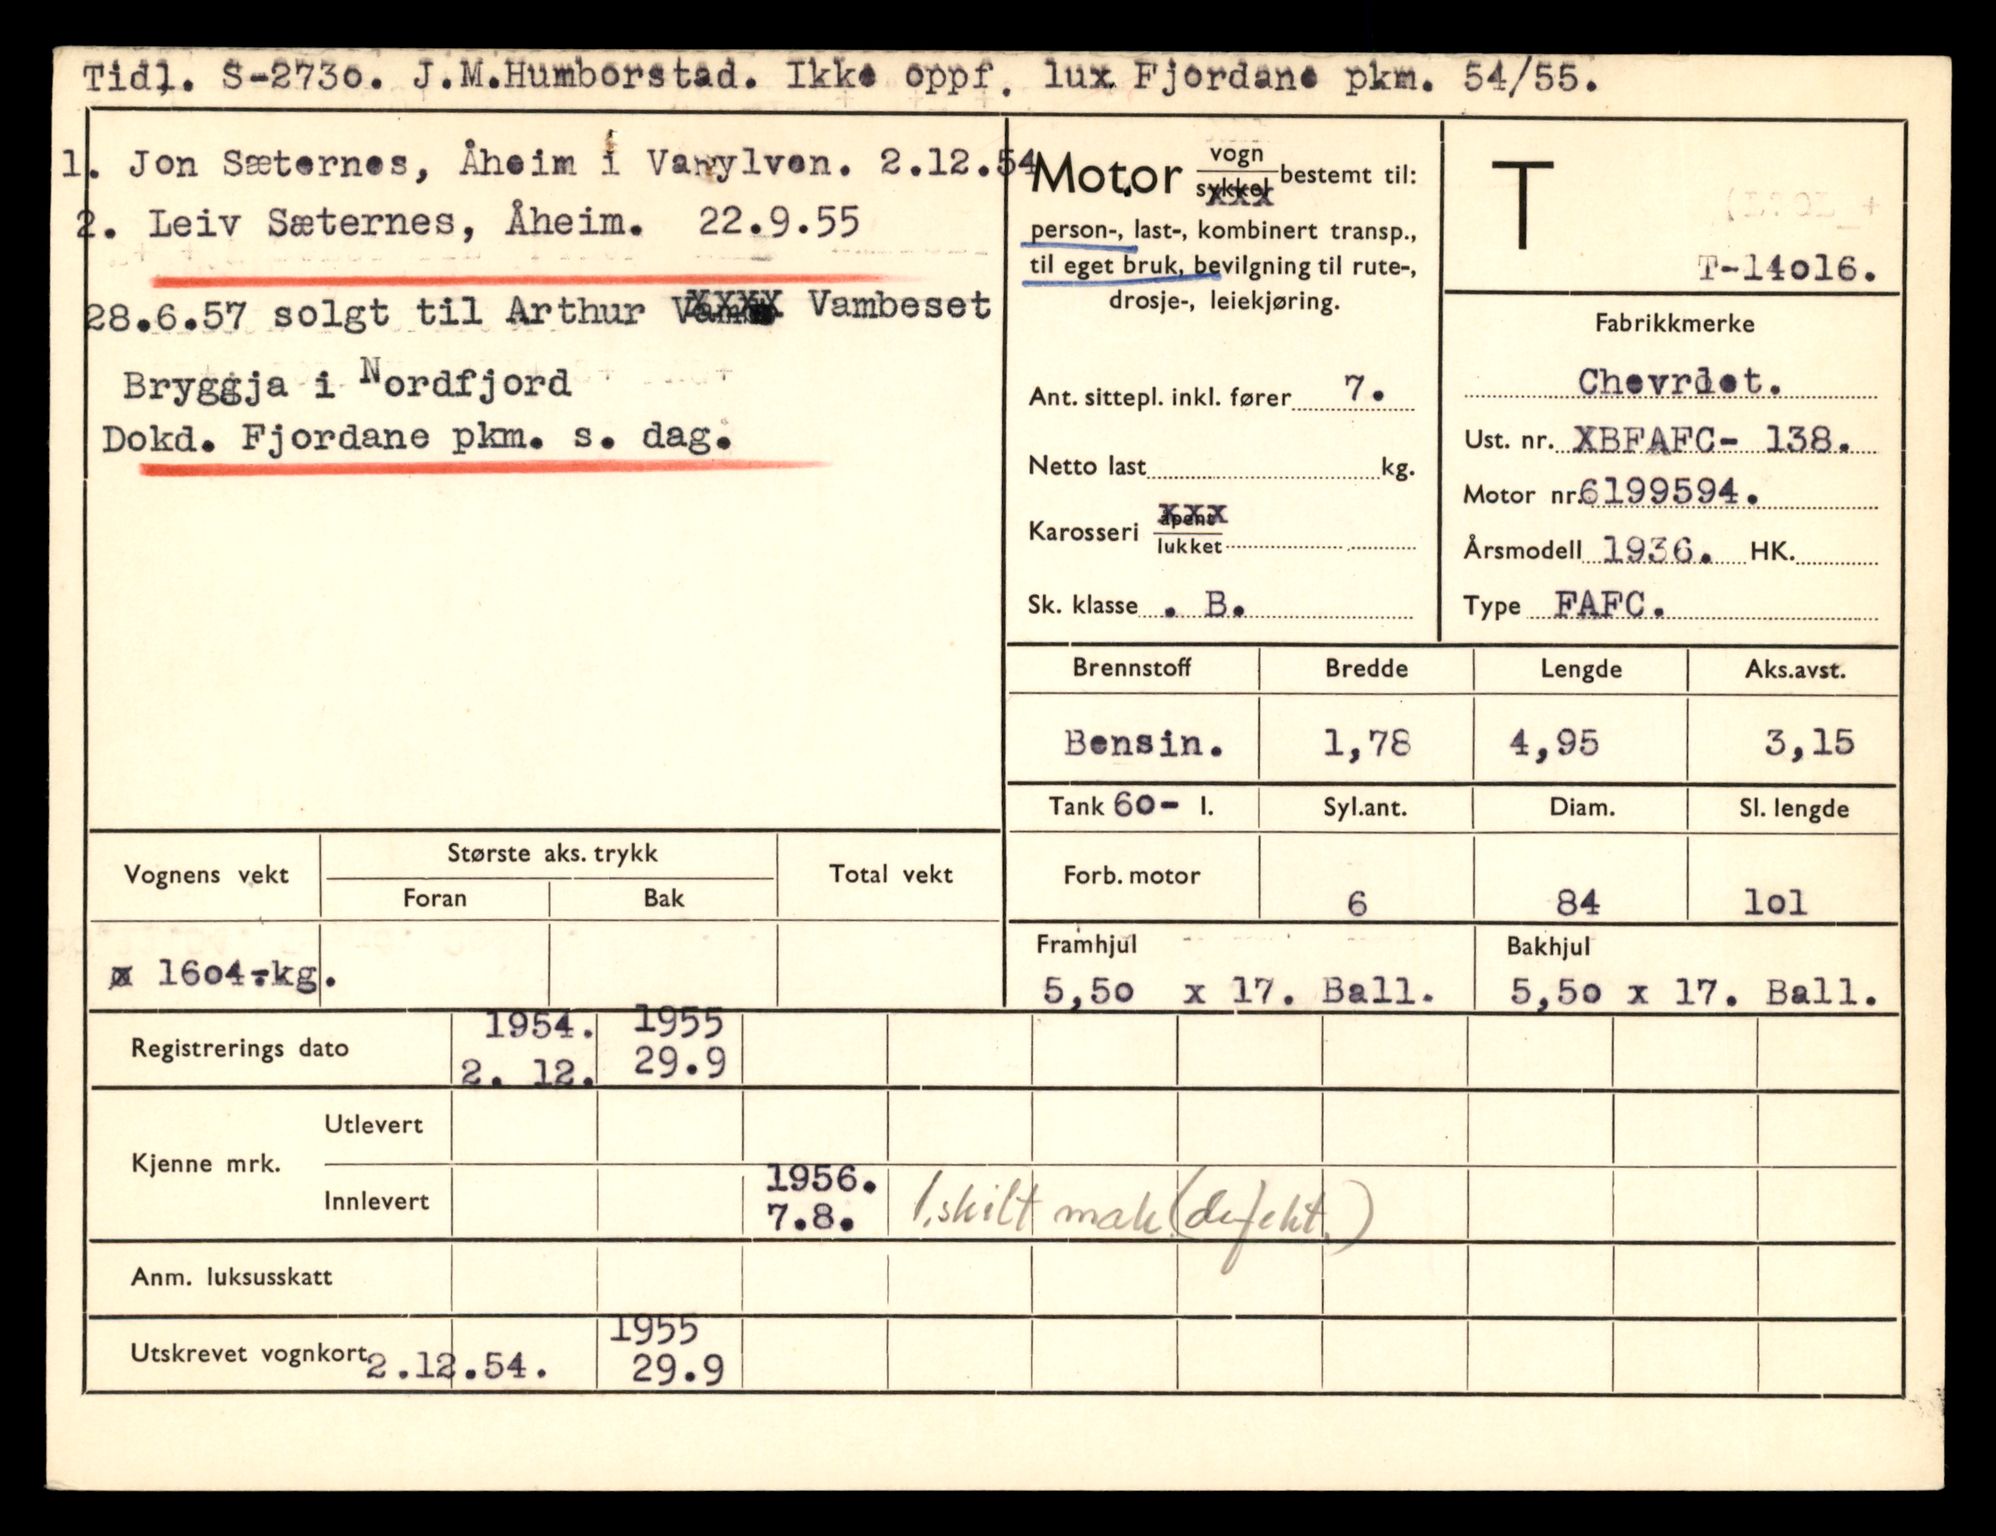 Tidl. S-2730. J.M.Humborstad. Ikke oppf. lux Fjordane pkm. 54/55.
1. Jon Sæternes, Åheim i Vanylven. 2.12.54
2. Leiv Sæternes, Åheim. 22.9.55
28.6.57 solgt til Arthur Vambeset
Bryggja i Nordfjord
Dokd. Fjordane pkm. s. dag.
Motor vogn
sykkel bestemt til:
person-, last-, kombinert transp.,
til eget bruk, bevilgning til rute-,
drosje-, leiekjøring.
Ant. sittepl. inkl. fører 7.
Netto last kg.
Karosseri åpent
lukket
Sk. klasse . B.
T
T-14016.
Fabrikkmerke
Chevrdet.
Ust. nr. XBFAFC- 138.
Motor nr. 6199594.
Årsmodell 1936. HK.
Type FAFC.
Brennstoff Bredde Lengde Aks.avst.
Bensin. 1,78 4,95 3,15
Tank 60- l. Syl.ant. Diam. Sl. lengde
Forb. motor 6 84 101
Framhjul Bakhjul
5,50 x 17. Ball. 5,50 x 17. Ball.
Vognens vekt Største aks. trykk Total vekt
Foran Bak
x 1604.-kg.
Registrerings dato 1954. 1955
2. 12. 29.9
Kjenne mrk. Utlevert
Innlevert 1956.
7.8. 1. skilt mak. (defekt.)
Anm. luksusskatt
Utskrevet vognkort 2.12.54. 1955
29.9